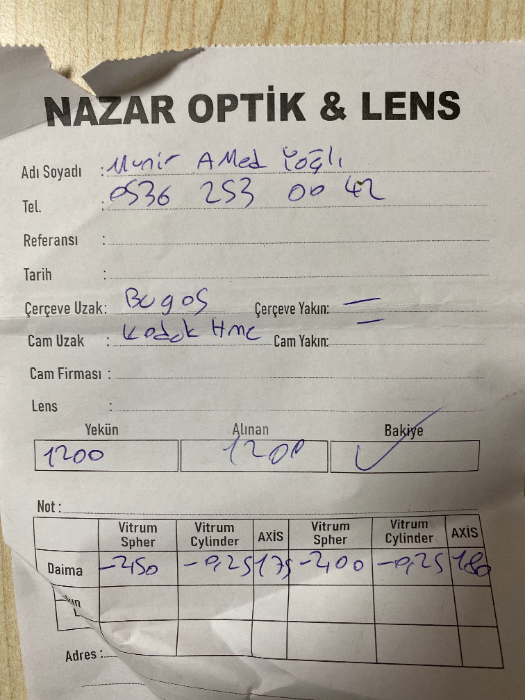 NAZAR OPTİK & LENS
Adı Soyadı : Munir AMed Yoğlı
Tel. : 0536 253 00 42
Referansı :
Tarih :
Çerçeve Uzak: Bugos Çerçeve Yakın: —
Cam Uzak : Kodak Hmc Cam Yakın: —
Cam Firması :
Lens :
Yekün Alınan Bakiye
1200 1200 ✓
Not :
Vitrum Spher Vitrum Cylinder AXİS Vitrum Spher Vitrum Cylinder AXİS
Daima -250 -0,25 175 -200 -0,25 180
Adres :